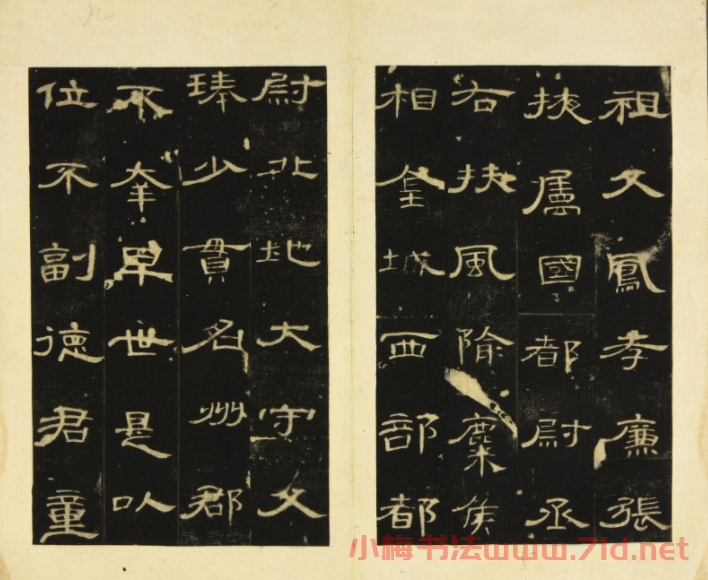 祖父鳳孝廉張
掖屬國都尉丞
右扶風隃麋侯
相金城西部都
尉北地大守父
琫少貫名州郡
不幸早世是以
位不副德君童
小梅书法www.7ld.net